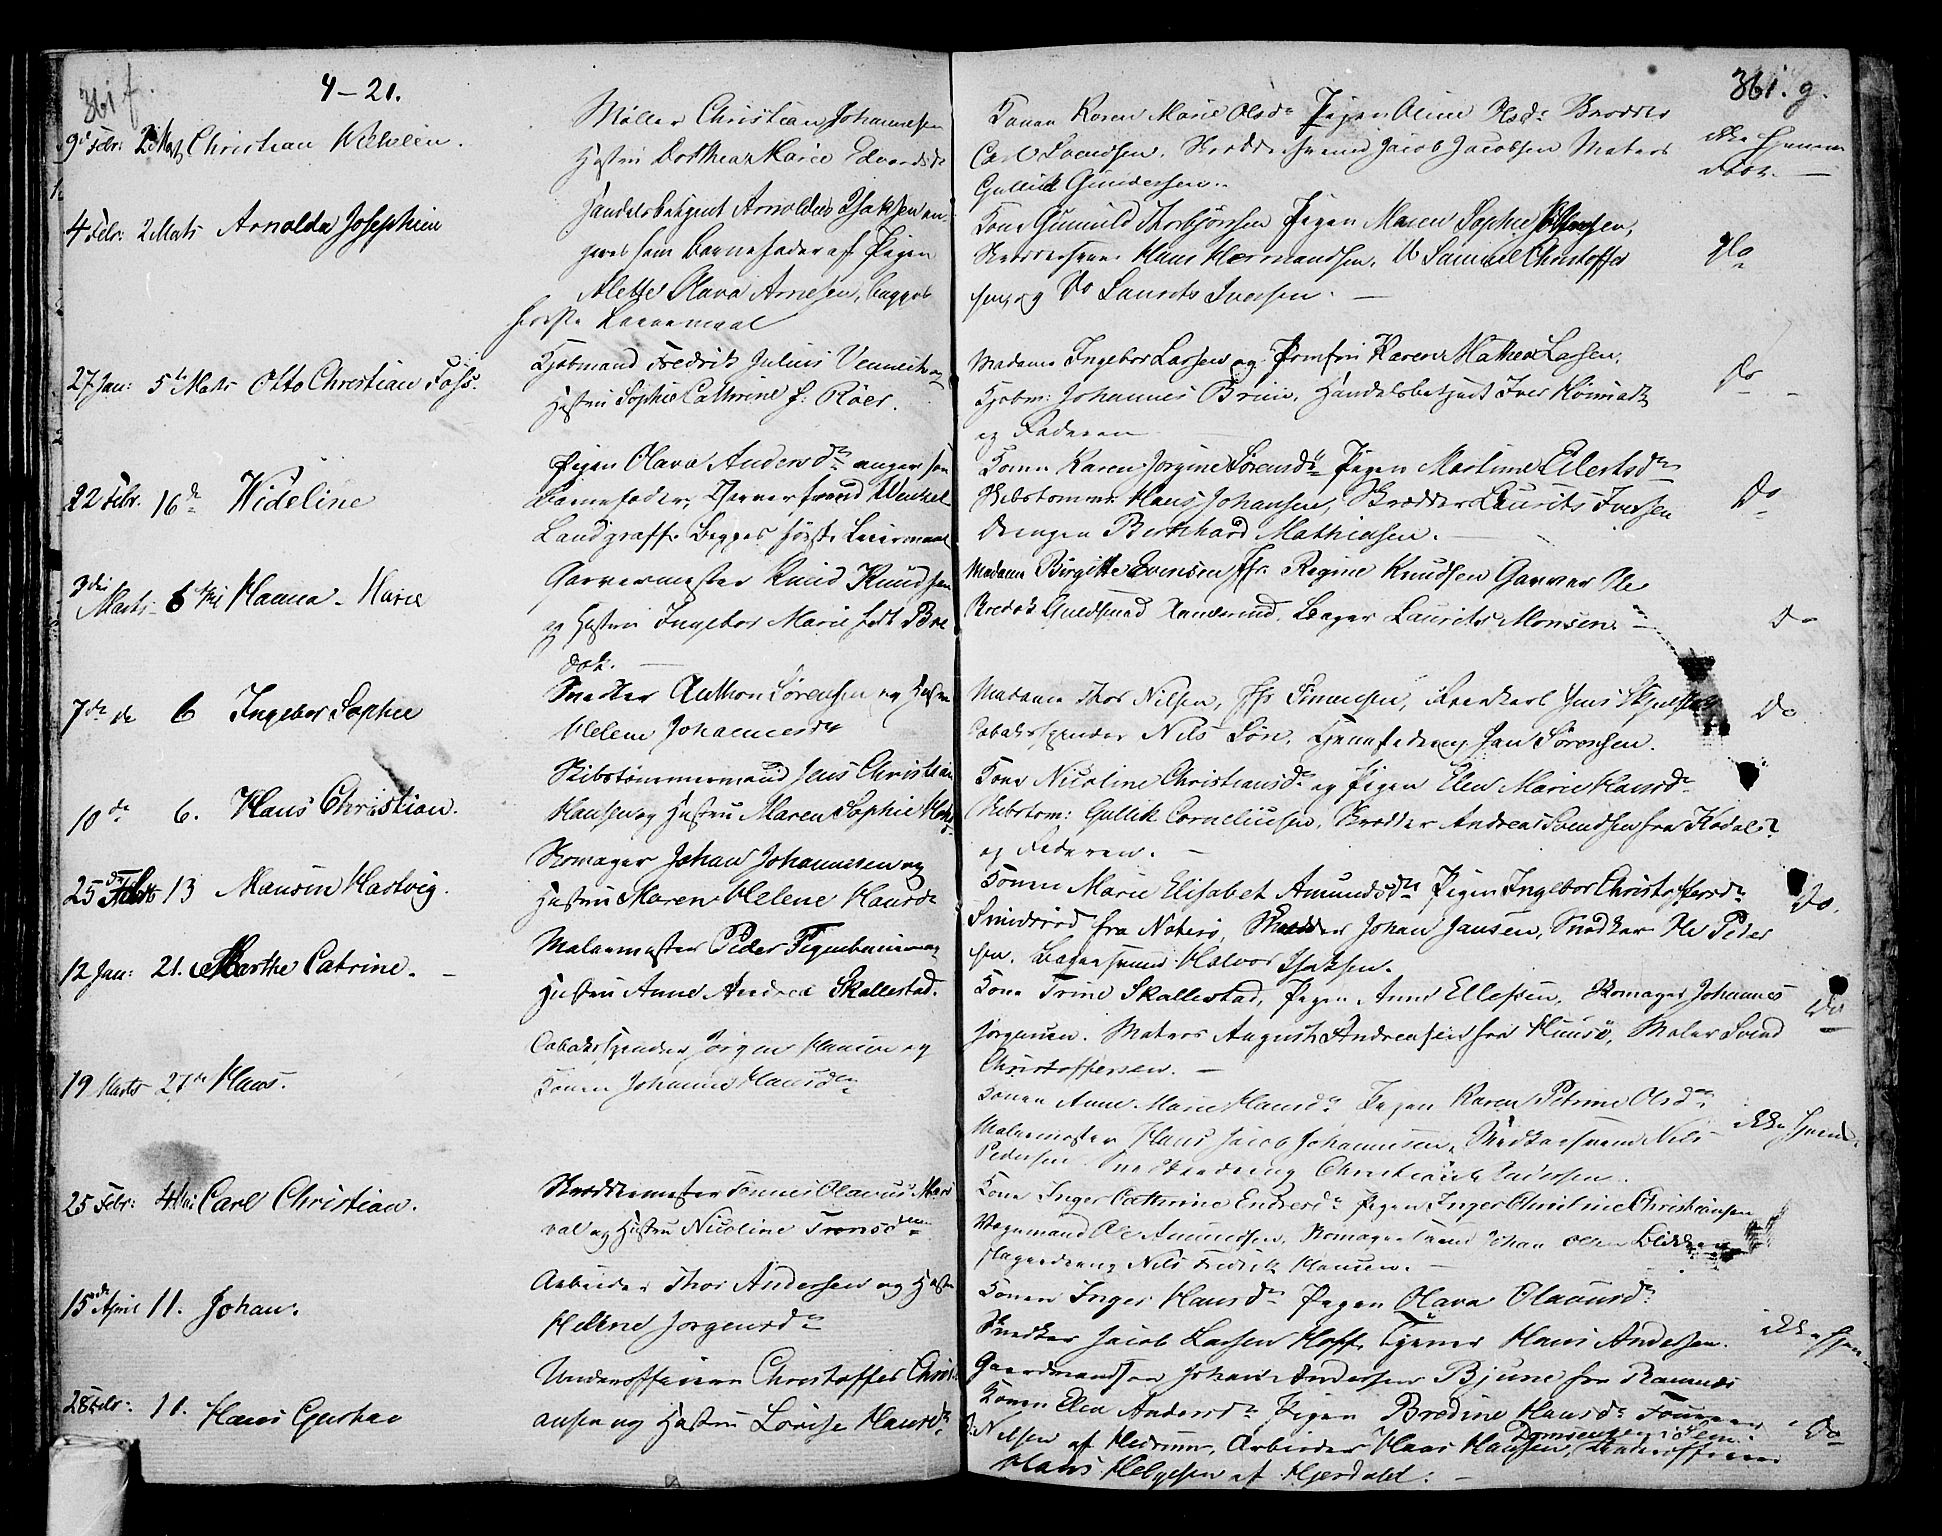 361 f.
4-21.
9 Febr: 2 Marts Christian Wilhelm.
Møller Christian Johannesen
Hustru Dorthea Marie Edvardsd.
4 Febr: 2 Marts Arnolda Josephine
Handelsbetjent Arnoldus Isaksen an-
gives som Barnefader af Pigen
Alette Olava Arnesen, begges
første Leiermaal
27 Jan: 5te Marts Otto Christian Foss.
Kjøbmand Fredrik Julius
Hustru Sophie Cathrine f: Röer.
22 Febr. 16de Wideline
Pigen Olava Andersdr angiver som
Barnefader, Garversvend Wenzel
Landgraff. Begges første Leiermaal
3die Marts 6 Hanna Marie
Garvermester Knud Knudsen
og Hustru Ingebor Marie født Bre
dok.
7de do 6 Ingebor Sophie
Snedker Anthon Sørensen og Hustru
Helene Johannesdr
10de 6. Hans Christian.
Skibstømmermand Jens Christian
Hansen og Hustru Maren Sophie
25 Febr 13 Mausin Hartvig.
Skomager Johan Johannesen og
Hustru Maren Helene Hansdr
12 Jan: 21. Marthe Catrine.
Malermester Peder Figenbaum og
Hustru Anne Andrea Skallestad.
19 Marts 27de Hans.
Tobaksspinder Jörgen Hansen og
Konen Johanne Hansdr
25 Febr: 4 Mai Carl Christian.
Skreddermester Tønnes Olavus
og Hustru Nicoline
15de April 11. Johan.
Arbeider Thor Andersen og Hustru
Helene Jørgensdr
28 Febr: 11. Hans Gustav
Underofficeer Christoffer Christi
ansen og Hustru Lovise Hansdr
361. g.
Konen Karen Marie Olsdr Pigen Oline Olsdr Skrædder
Carl Svendsen. Skræddersvend Jacob Jacobsen Matros
Gullik Gundersen.
ikke hjemme
døbt.
Kone Gunnild Thorbjörnsen Pigen Maren Sophie
Skræddersvend Hans Hermandsen. Do Samuel Christoffer
sen, og Do Laurits Iversen.
Do
Madame Ingebor Larsen og Jomfru Karen Mathea Larsen.
Kjøbm: Johannes Bruun, Handelsbetjent Iver
og Faderen
Do
Konen Karen Jørgine Sørensdr Pigen Martine Eilertsdr
Skibstømmer: Hans Johansen, Skredder Laurits Iversen
Drengen Bernhard Mathiesen.
Do
Madame Birgitte Evensen Jfr. Regine Knudsen Garver Ole
Bredok Guldsmed Sandersund, Bager Laurits Monsen.
Do
Madame Thor Nilsen, Jfr Simensen, Jens
Tobaksspinder Nils Jan Sørensen.
Do
Kone Nicoline Christiansdr og Pigen Elen Marie Hansdr
Skibstøm: Gullik Corneliusen, Skredder Andreas Svendsen fra Kodal
og Faderen.
Konen Marie Elisabet Amundsdr Pigen Ingebor Christoffersdr
Smidsrød fra Nøterø, Johan Jansen, Snedker Ole Peder
sen. Bagersvend Halvor Isaksen.
Do.
Kone Trine Skallestad, Pigen Anne Ellefsen, Skomager Johannes
Jørgensen. Matros August Andreasen fra Huusø, Maler Svend
Christoffersen.
Do
Konen Anne Marie Hansdr Pigen Karen Petrine Olsdr
Malermester Hans Jacob Johannesen, Snedkersvend Nils
Pedersen Snedkerdreng Christian
ikke hjeme.
Kone Inger Cathrine Endresdr Pigen Inger Christine Christiansen
Vognmand Ole Amundsen, Skomagersvend Johan Olsen
Nils Fredrik Hansen.
Konen Inger Hansdr Pigen Olava Olavusdr
Snedker Jacob Larsen Hoff. Tjener Hans Andersen.
Gaardmandssøn Johan Andersen Bjune fra Ramnes
ikke hjem
Konen Elen Andersdr Pigen Bredine Hansdr
Nilsen af Hedrum, Arbeider Hans Hansen, Underofficeer
Hans Helgesen af Hjerdal.
Do